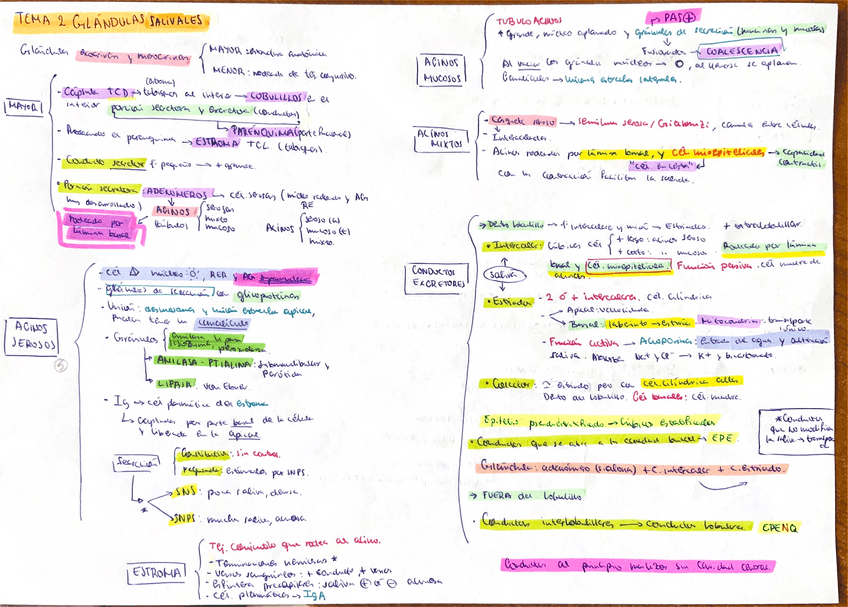 TEMA 2 GLÁNDULAS SALIVALES
Glándulas exocrinas y merocrinas
MAYOR: estructura anatómica
MENOR: rodeada de tej. conjuntivo.
MAYOR
- Cápsula TCD → tabiques al interior → LOBULILLOS en el
interior porción secretora y excretora (conductos)
PARÉNQUIMA (parte funcional)
- Rodeando el parénquima → ESTROMA TCL (tabiques)
- Conducto secretor + pequeño → + grande.
- Porción secretora: ADENOMEROS → cél. serosas (núcleo redondo y AG
muy desarrollado) RE
Rodeado por
lámina basal
ACINOS
túbulos
serosos
mixto
mucoso
ACINOS
seroso
mucoso
mixto
ACINOS
SEROSOS
- cél núcleo RER y AG
- gránulos de secreción con glicoproteínas
- Unión: desmosomas y unión estrecha apical,
canalículo
- Gránulos
lisozima, peroxidasa
AMILASA - PTIALINA: submandibular y
parótida
LIPASA: Von Ebner
- Ig → cél plasmática del estroma
↳ Captadas por parte basal de la célula
y liberada en la apical
Secreción
Constitutiva: sin control
regulada: estimulada por SNPS.
* SNS: poca saliva, densa.
SNPS: mucha saliva, acuosa.
ESTROMA
Tej. conjuntivo que rodea al acino.
- Terminaciones nerviosas *
- Vasos sanguíneos: + conducto, + vasos
- Esfínteres precapilares: saliva ⊕ o ⊖ acuosa
- cél. plasmáticas → IgA
ACINOS
MUCOSOS
TUBULOACINOS → PAS⊕
+ Grande, núcleo aplanado y gránulos de secreción (mucinas y mucosas)
Fusionados → COALESCENCIA
Al vaciar los gránulos núcleo → O, al llenarse se aplanan.
Canalículos → Uniones estrechas laterales.
ACINOS
MIXTOS
- Casquete seroso → semiluna serosa / Gianuzzi, canalículo entre células.
- Intercelulares.
- Acinos rodeados por lámina basal, y cél. mioepiteliales → capacidad
contráctil
"cél en cesta"
con su contracción facilitan la salida.
CONDUCTOS
EXCRETORES
→ Dentro lobulillo → 1º intercalar y unión → Estriados. + intralobulillar.
• Intercalar: Cúbicas cél + largo: acinos seroso
+ corto: " mucoso
Rodeado por lámina
basal y cél. mioepitelial. Función pasiva. cél madre de
acinos
Saliva
• Estriados - 2 Ø + intercalares. cél. cilíndrica
- Apical: vellosidades.
- Basal: laberinto estrías Mitocondrias: transporte
iónico.
- Función activa → Acuoporina: entrada de agua y alteración
saliva. Absorbe Na+ y Cl- → K+ y bicarbonato
- Colector: ≈ estriado pero con cél. cilíndrica altas.
Dentro del lobulillo. Cél basales: cél. madre.
Epitelio pseudoestratificado → Cúbicos estratificados
• Conductos que se abre a la cavidad bucal → EPE.
*Conductos
que no modifica
la saliva → transporte
Glándula: adenómero (s. aloja) + C. intercalar + C. Estriado.
→ FUERA del lobulillo
- Conductos interlobulillares → conductos lobulares. EPENQ
Conductos al principio macizos sin cavidad central.